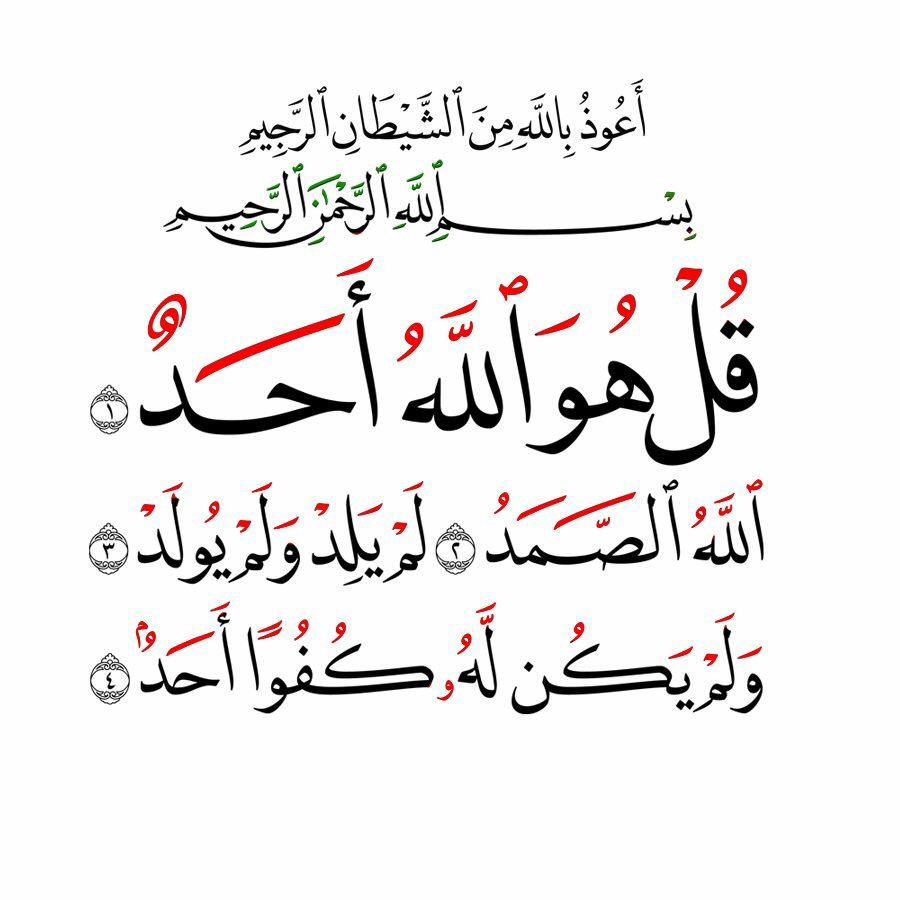 أَعُوذُ بِاللَّهِ مِنَ ٱلشَّيْطَانِ ٱلرَّجِيمِ
بِسْمِ ٱللَّهِ ٱلرَّحْمَٰنِ ٱلرَّحِيمِ
قُلْ هُوَ ٱللَّهُ أَحَدٌ ١
ٱللَّهُ ٱلصَّمَدُ ٢ لَمْ يَلِدْ وَلَمْ يُولَدْ ٣
وَلَمْ يَكُن لَّهُۥ كُفُوًا أَحَدٌۢ ٤